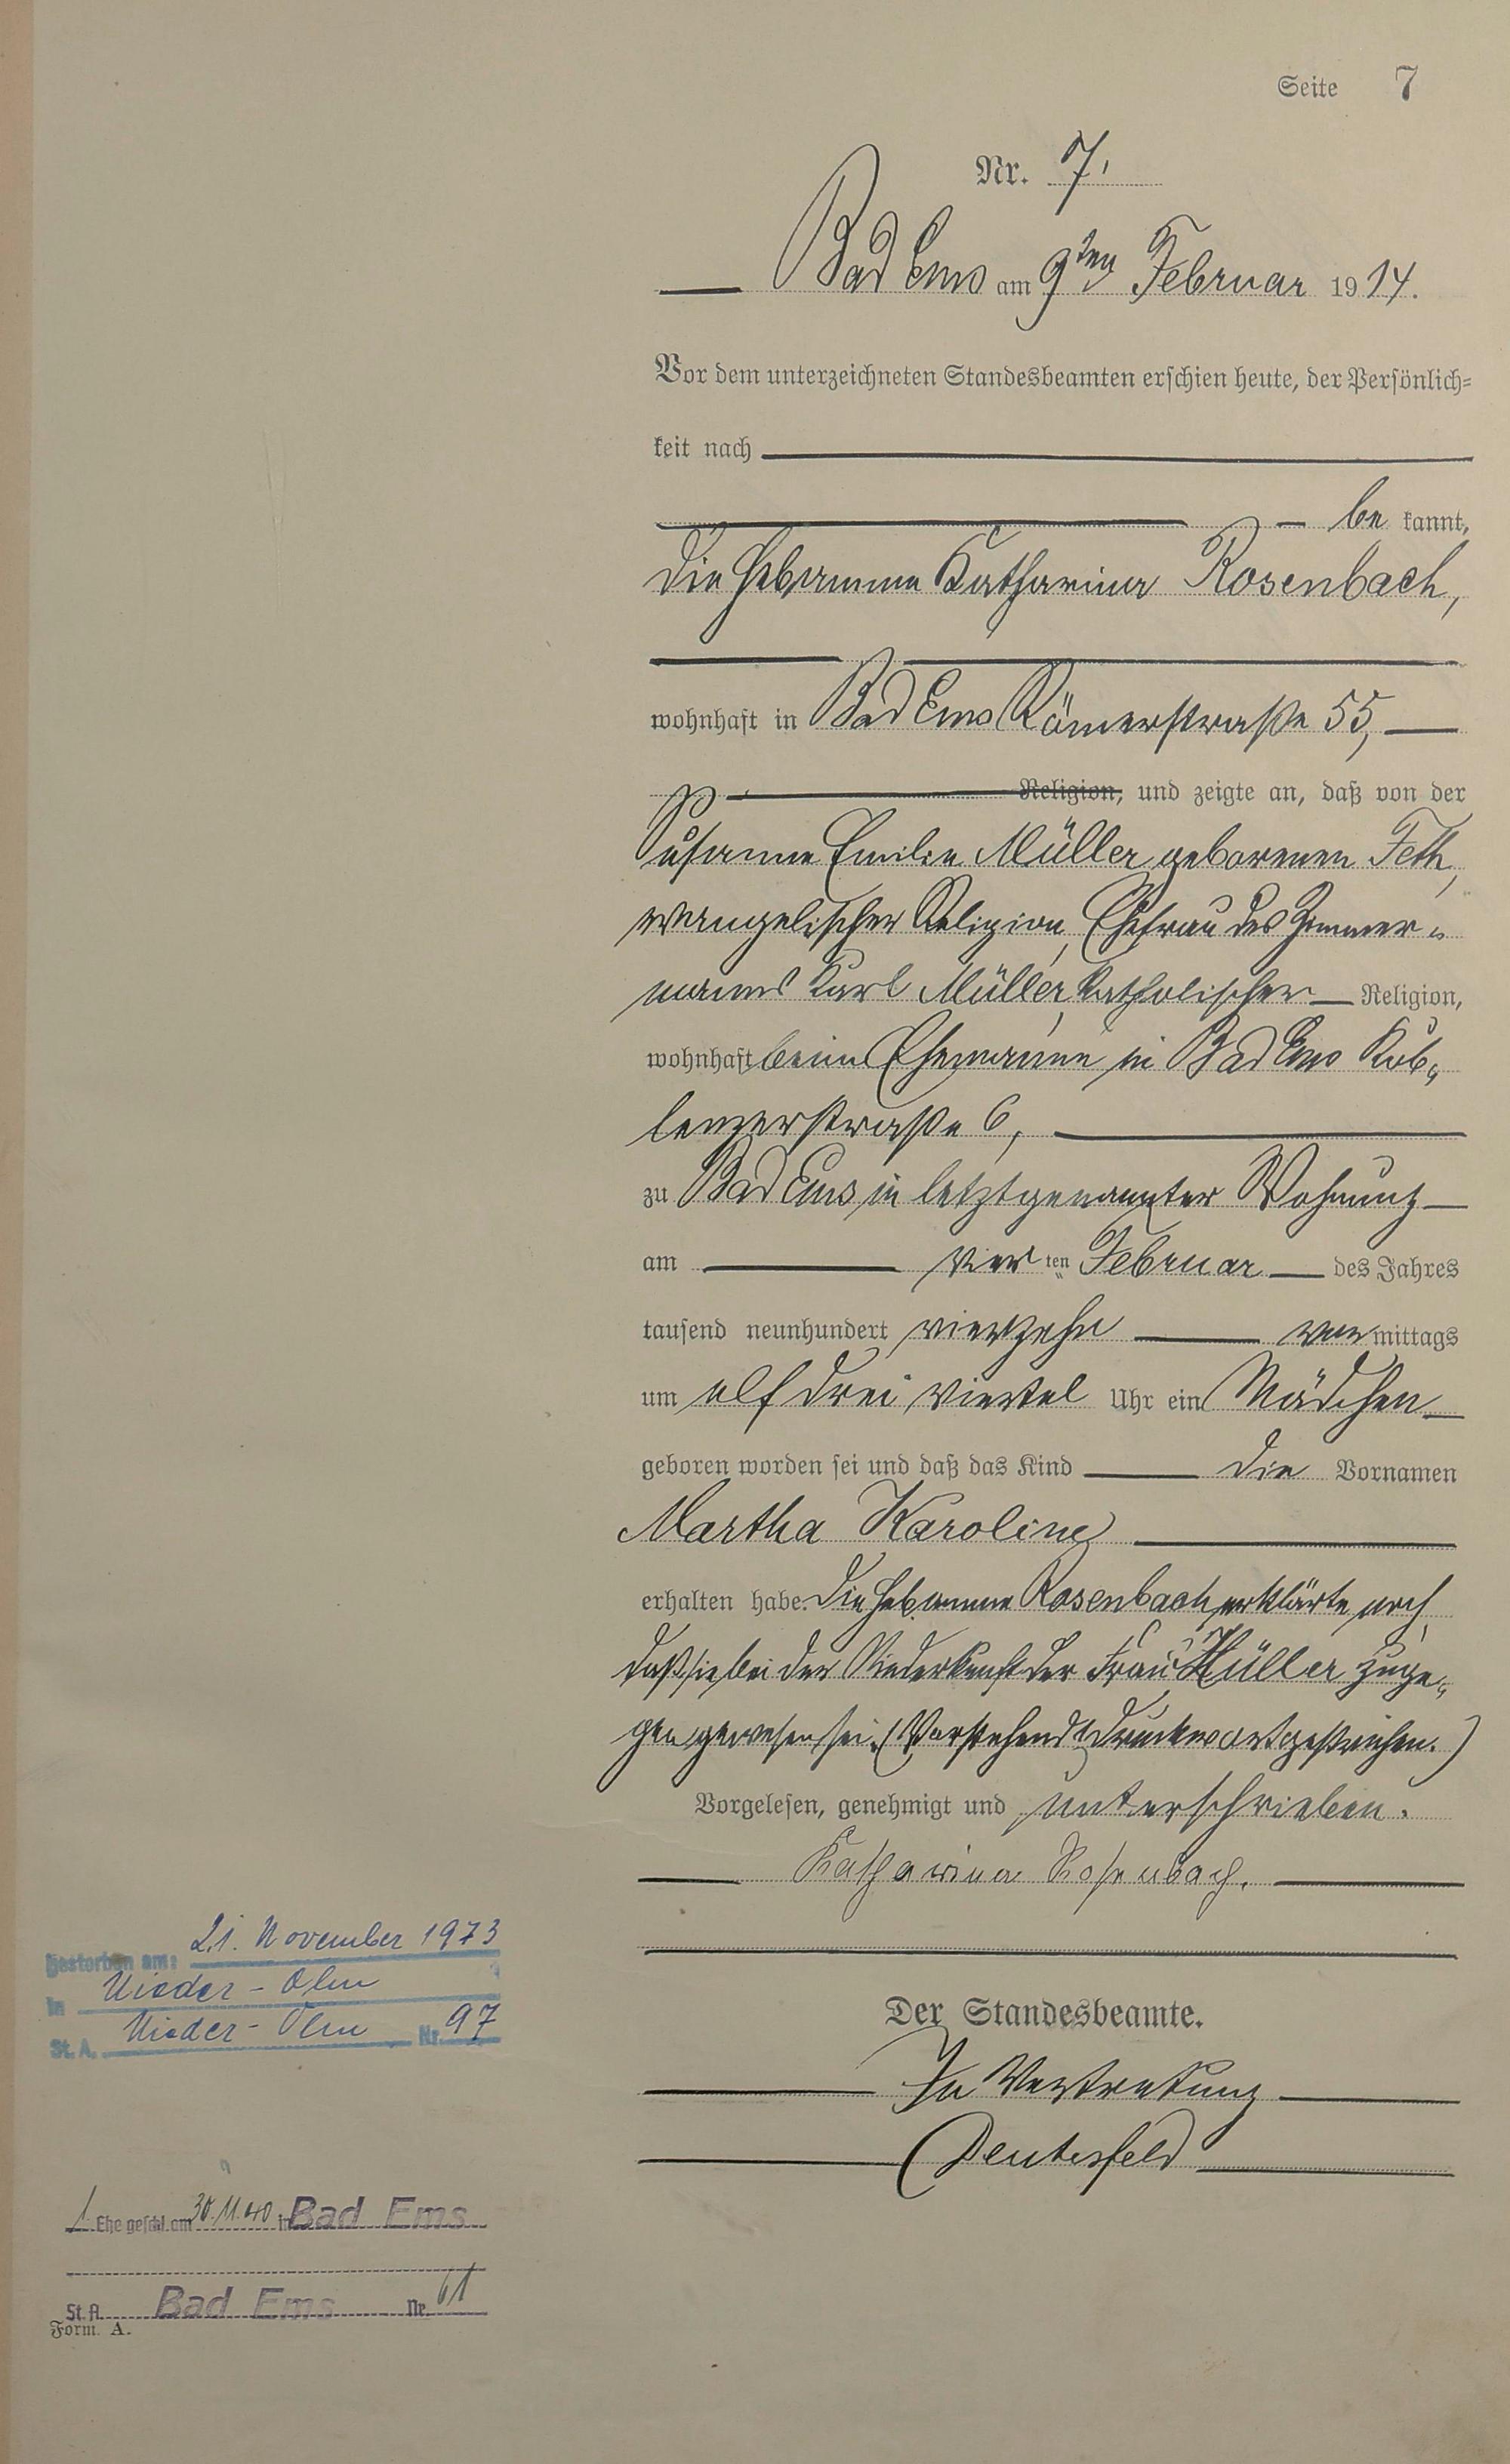 Seite 7
Nr. 7.
Bad Ems am 9ten Februar 1914.
Vor dem unterzeichneten Standesbeamten erschien heute, der Persönlich=
keit nach
be kannt,
die Hebamme Katharina Rosenbach,
wohnhaft in Bad Ems Römerstraße 55,
Religion, und zeigte an, daß von der
Susanna Emilie Müller geborenen Feth,
evangelischer Religion, Ehefrau des Zimmer-
manns Karl Müller, katholischer Religion,
wohnhaft beim Ehemanne in Bad Ems Kob-
lenzerstraße 6,
zu Bad Ems in letztgenannter Wohnung
am vier ten Februar des Jahres
tausend neunhundert vierzehn vor mittags
um elf drei viertel Uhr ein Mädchen
geboren worden sei und daß das Kind die Vornamen
Martha Karoline
erhalten habe. Die Hebamme Rosenbach erklärte noch,
daß sie bei der Niederkunft der Frau Müller zuge-
gen gewesen sei. (Vorstehend 1 Druckwort gestrichen.)
Vorgelesen, genehmigt und unterschrieben.
Katharina Rosenbach.
Der Standesbeamte.
In Vertretung
Deutesfeld
Gestorben am: 21. November 1973
in Nieder-Olm
St. A. Nieder-Olm Nr. 97
1. Ehe geschl. am 30.11.40 in Bad Ems
St. A. Bad Ems Nr. 61
Form. A.